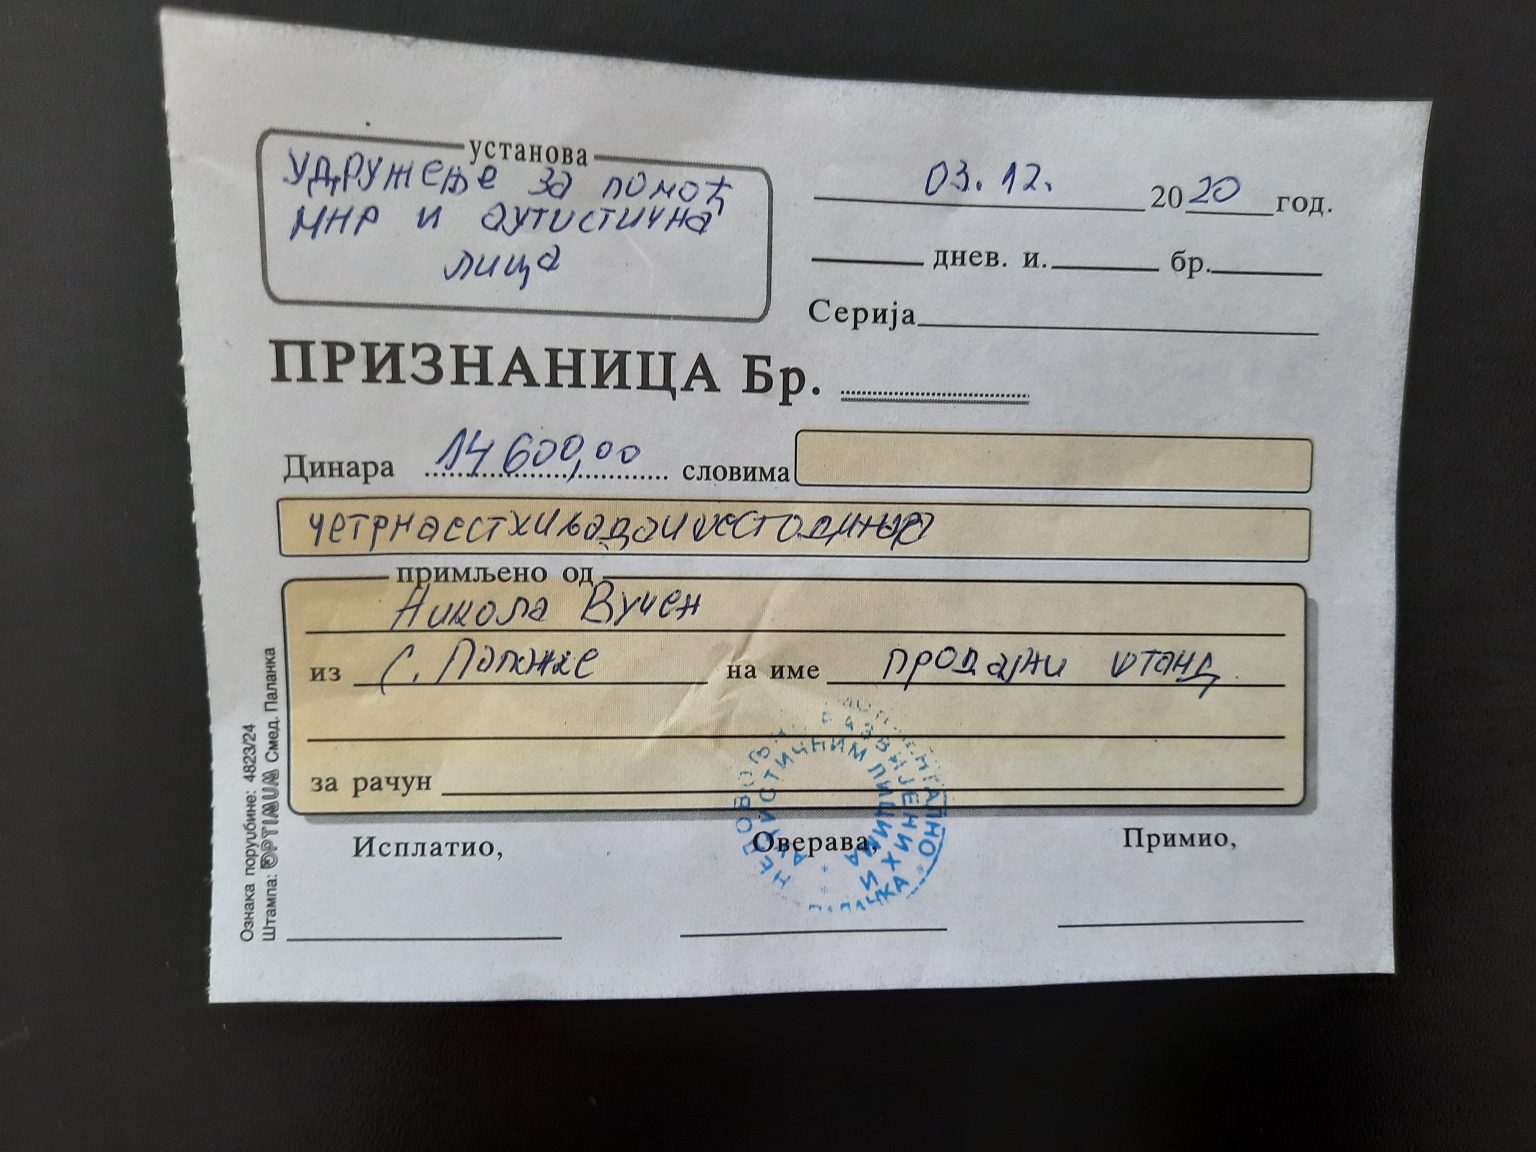 установа
удружење за помоћ
МНР и аутистична
лица
03. 12. 2020 год.
днев. и. бр.
Серија
ПРИЗНАНИЦА Бр.
Динара 14 600,00 словима
четрнаестхиљадаишестодинара
примљено од
Никола Вучен
из С. Паланке на име продајни штанд
за рачун
Исплатио, Оверава, Примио,
Ознака поруџбине: 4823/24
Штампа: OPTIMUM Смед. Паланка
РАЗВИЈЕНИХ И
АУТИСТИЧНИМ ЛИЦИМА